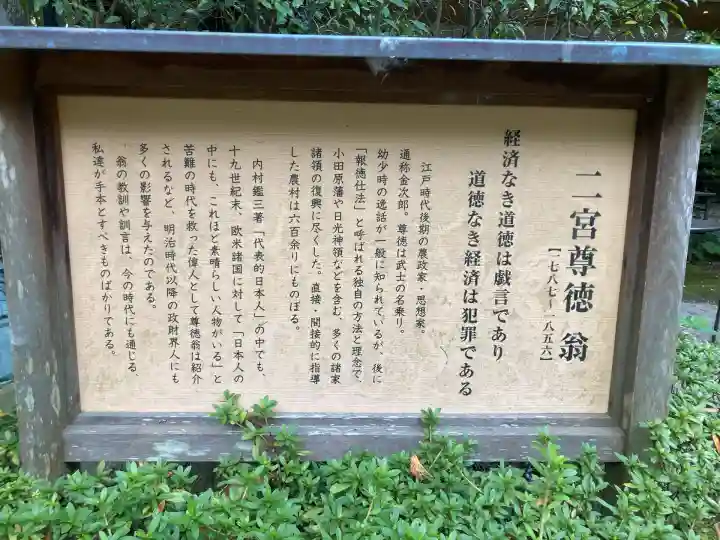 二宮尊徳 翁
【一七八七ー一八五六】
経済なき道徳は戯言であり
道徳なき経済は犯罪である
江戸時代後期の農政家・思想家。
通称金次郎。尊徳は武士の名乗り。
幼少時の逸話が一般に知られているが、後に
「報徳仕法」と呼ばれる独自の方法と理念で、
小田原藩や日光神領などを含む、多くの諸家
諸領の復興に尽くした。直接・間接的に指導
した農村は六百余りにものぼる。
内村鑑三著「代表的日本人」の中でも、
十九世紀末、欧米諸国に対して「日本人の
中にも、これほど素晴らしい人物がいる」と
苦難の時代を救った偉人として尊徳翁は紹介
されるなど、明治時代以降の政財界人にも
多くの影響を与えたのである。
翁の教訓や訓言は、今の時代にも通じる、
私達が手本とすべきものばかりである。